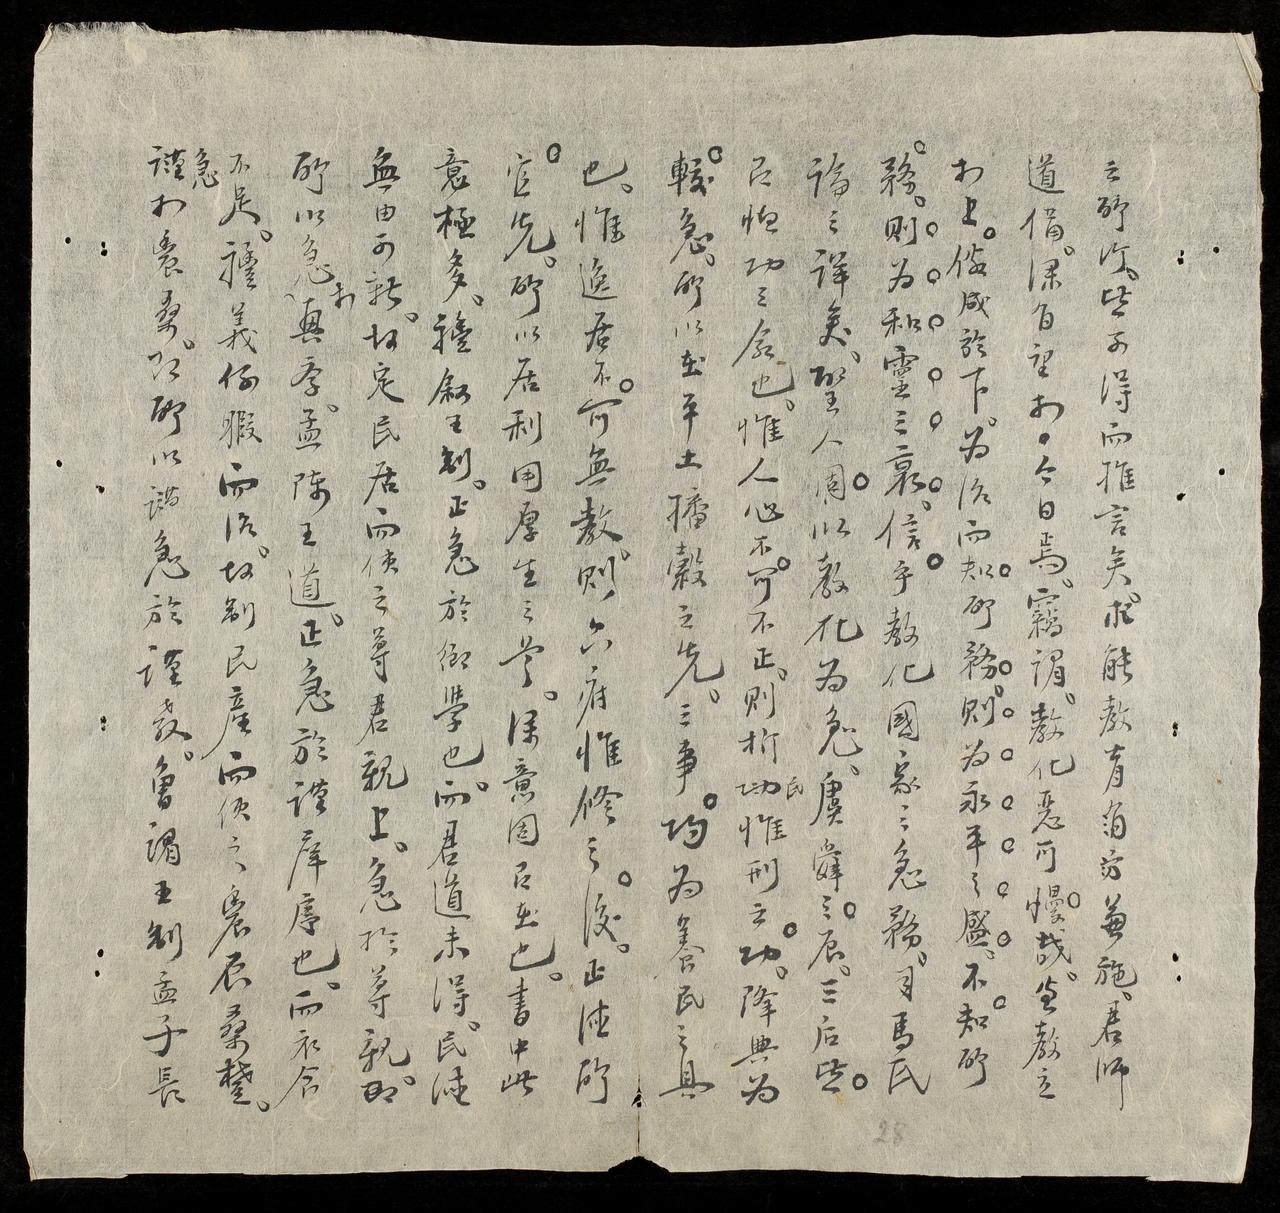 之所行。皆可得而推言矣。能教有自方並施。君師
道備。深有望於今日焉。竊謂。教化惡可慢哉。盖教立
於上。俗成於下。為治而知所務。則為永平之盛。不知所
務。則為和靈之衰。信乎教化國家之急務。司馬氏
論之詳矣。聖人固以教化為急。虞舜之辰。三后皆
以恤功之命也。惟人心不可不正。則折民惟刑之功。降典為
較急。所以在平土播穀之先。三事。均為養民之具
也。惟逸居不可無教。則六府惟修之後。正德所
宜先。所以居利用厚生之首。深意固已在也。書中此
意極多。禮叙王制。正急於鄉學也。而君道未得。民德
無由可新。故定民居而使之尊君親上。急於尊親耶。
所以急於興孝。孟陳王道。正急於謹庠序也。而衣食
不足。禮義何暇而治。故制民產而使之農辰桑
謹於農桑。所以謂急於謹教。曾謂王制孟子長
急
28